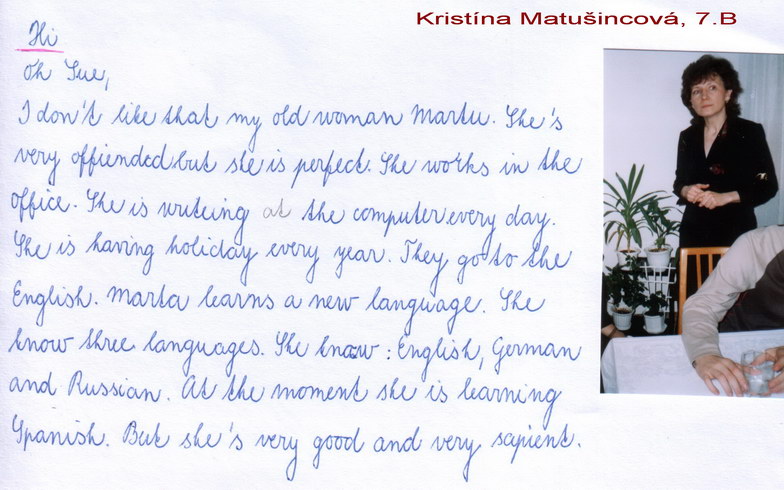 Kristína Matušincová, 7.B
Hi
Oh Sue,
I don't like that my old woman Martu. She's
very offiended but she is perfect. She works in the
office. She is writeing at the computer every day.
She is having holiday every year. They go to the
English. Marta learns a new language. She
know three languages. She know: English, German
and Russian. At the moment she is learning
Spanish. But she's very good and very sapient.